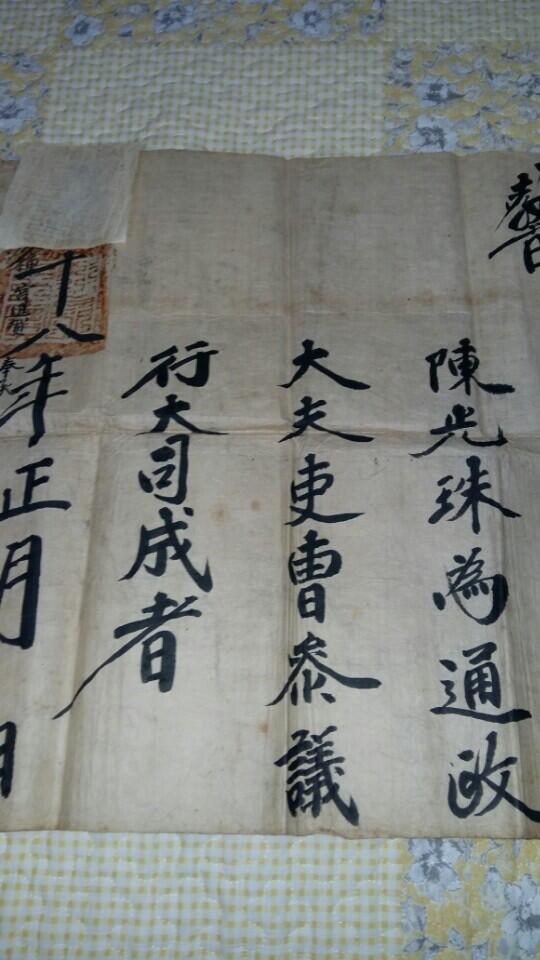 陳光珠為通政
大夫吏曹叅議
行大司成者
十八年正月 日